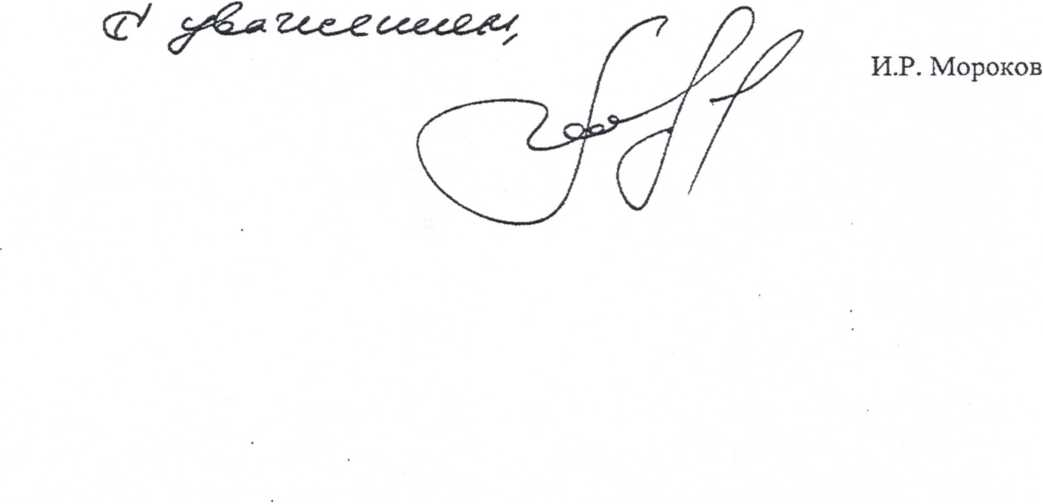 С уважением,
И.Р. Мороков